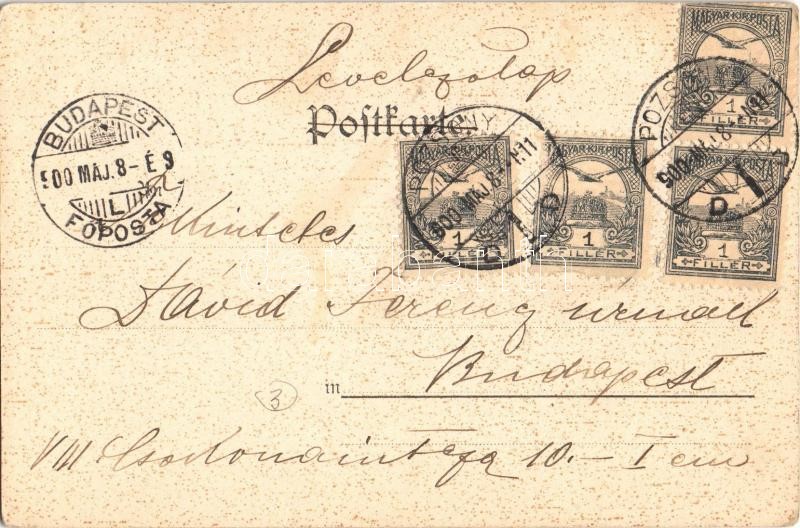 Levelezőlap
Postkarte.
BUDAPEST
900 MÁJ. 8 - É 9
FŐPOSTA
POZSONY
900 MÁJ. 8
D
POZS
900 MÁJ. 8
D
MAGYAR KIR. POSTA
1
FILLÉR
MAGYAR KIR. POSTA
1
FILLÉR
MAGYAR KIR. POSTA
1
FILLÉR
MAGYAR KIR. POSTA
1
FILLÉR
Dávid Ferencz úrnak
in Budapest
3
VIII Csokonai utcza 10. - I em